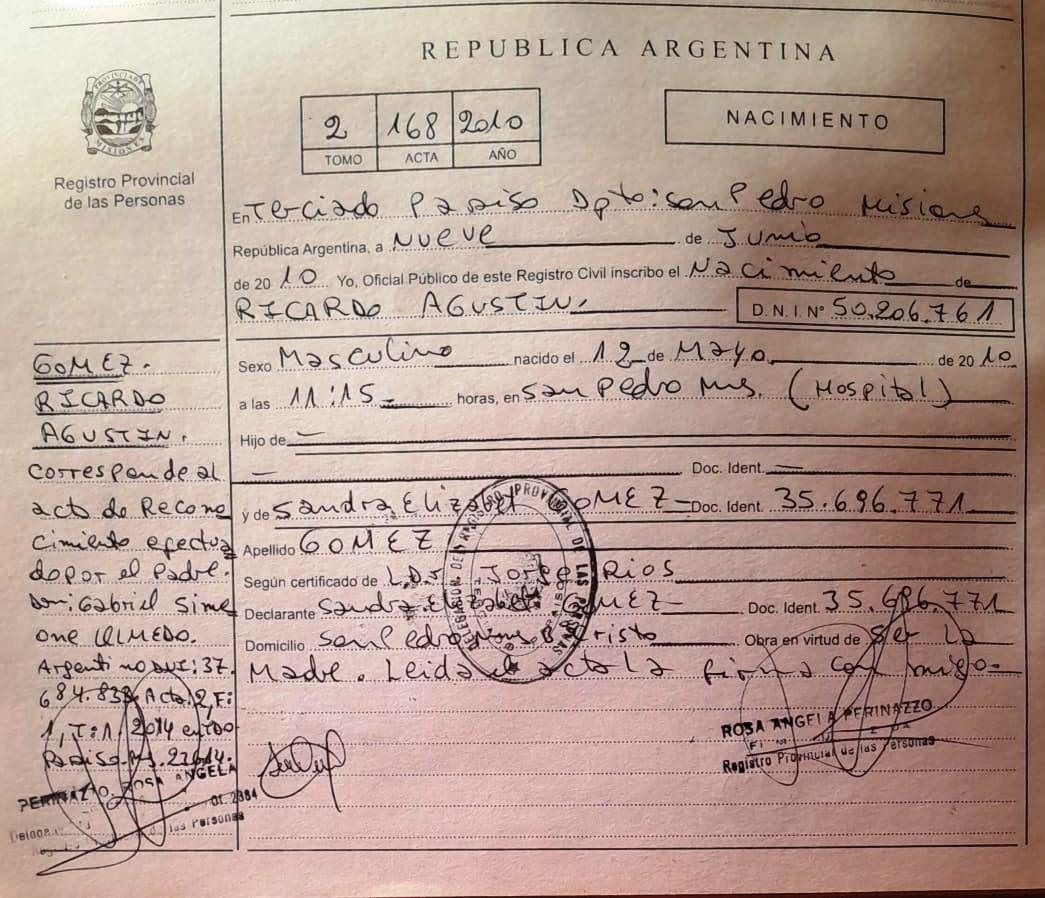 REPUBLICA ARGENTINA
PROVINCIA DE MISIONES
Registro Provincial
de las Personas
2 168 2010
TOMO ACTA AÑO
NACIMIENTO
En Terciado Paraiso Dpto: San Pedro Misiones
República Argentina, a Nueve de Junio
de 2010 Yo, Oficial Público de este Registro Civil inscribo el Nacimiento de
RICARDO AGUSTIN. D.N.I. Nº 50.206.761
Sexo Masculino nacido el 12 de Mayo de 2010
a las 11:15 horas, en San Pedro Mns. (Hospital)
Hijo de —
— Doc. Ident. —
y de Sandra Elizabet GOMEZ Doc. Ident. 35.696.771
Apellido GOMEZ
Según certificado de Jorge RIOS
Declarante Sandra Elizabet GOMEZ Doc. Ident. 35.696.771
Domicilio San Pedro Mns. B. Cristo Obra en virtud de ser la
Madre. Leida el acta la firma conmigo
GOMEZ.
RICARDO
AGUSTIN.
Corresponde al
acto de Recono
cimiento efectua
do por el Padre.
Gabriel Sime
one OLMEDO.
Argentino DNI: 37.
684.833 Acta: 2, F:
1, T: 1, 2014 en TDO
Paraiso
PERINAZZO, ROSA ANGELA
de las Personas
DELEGACION DEL REGISTRO PROVINCIAL DE LAS PERSONAS
ROSA ANGELA PERINAZZO
Registro Provincial de las Personas